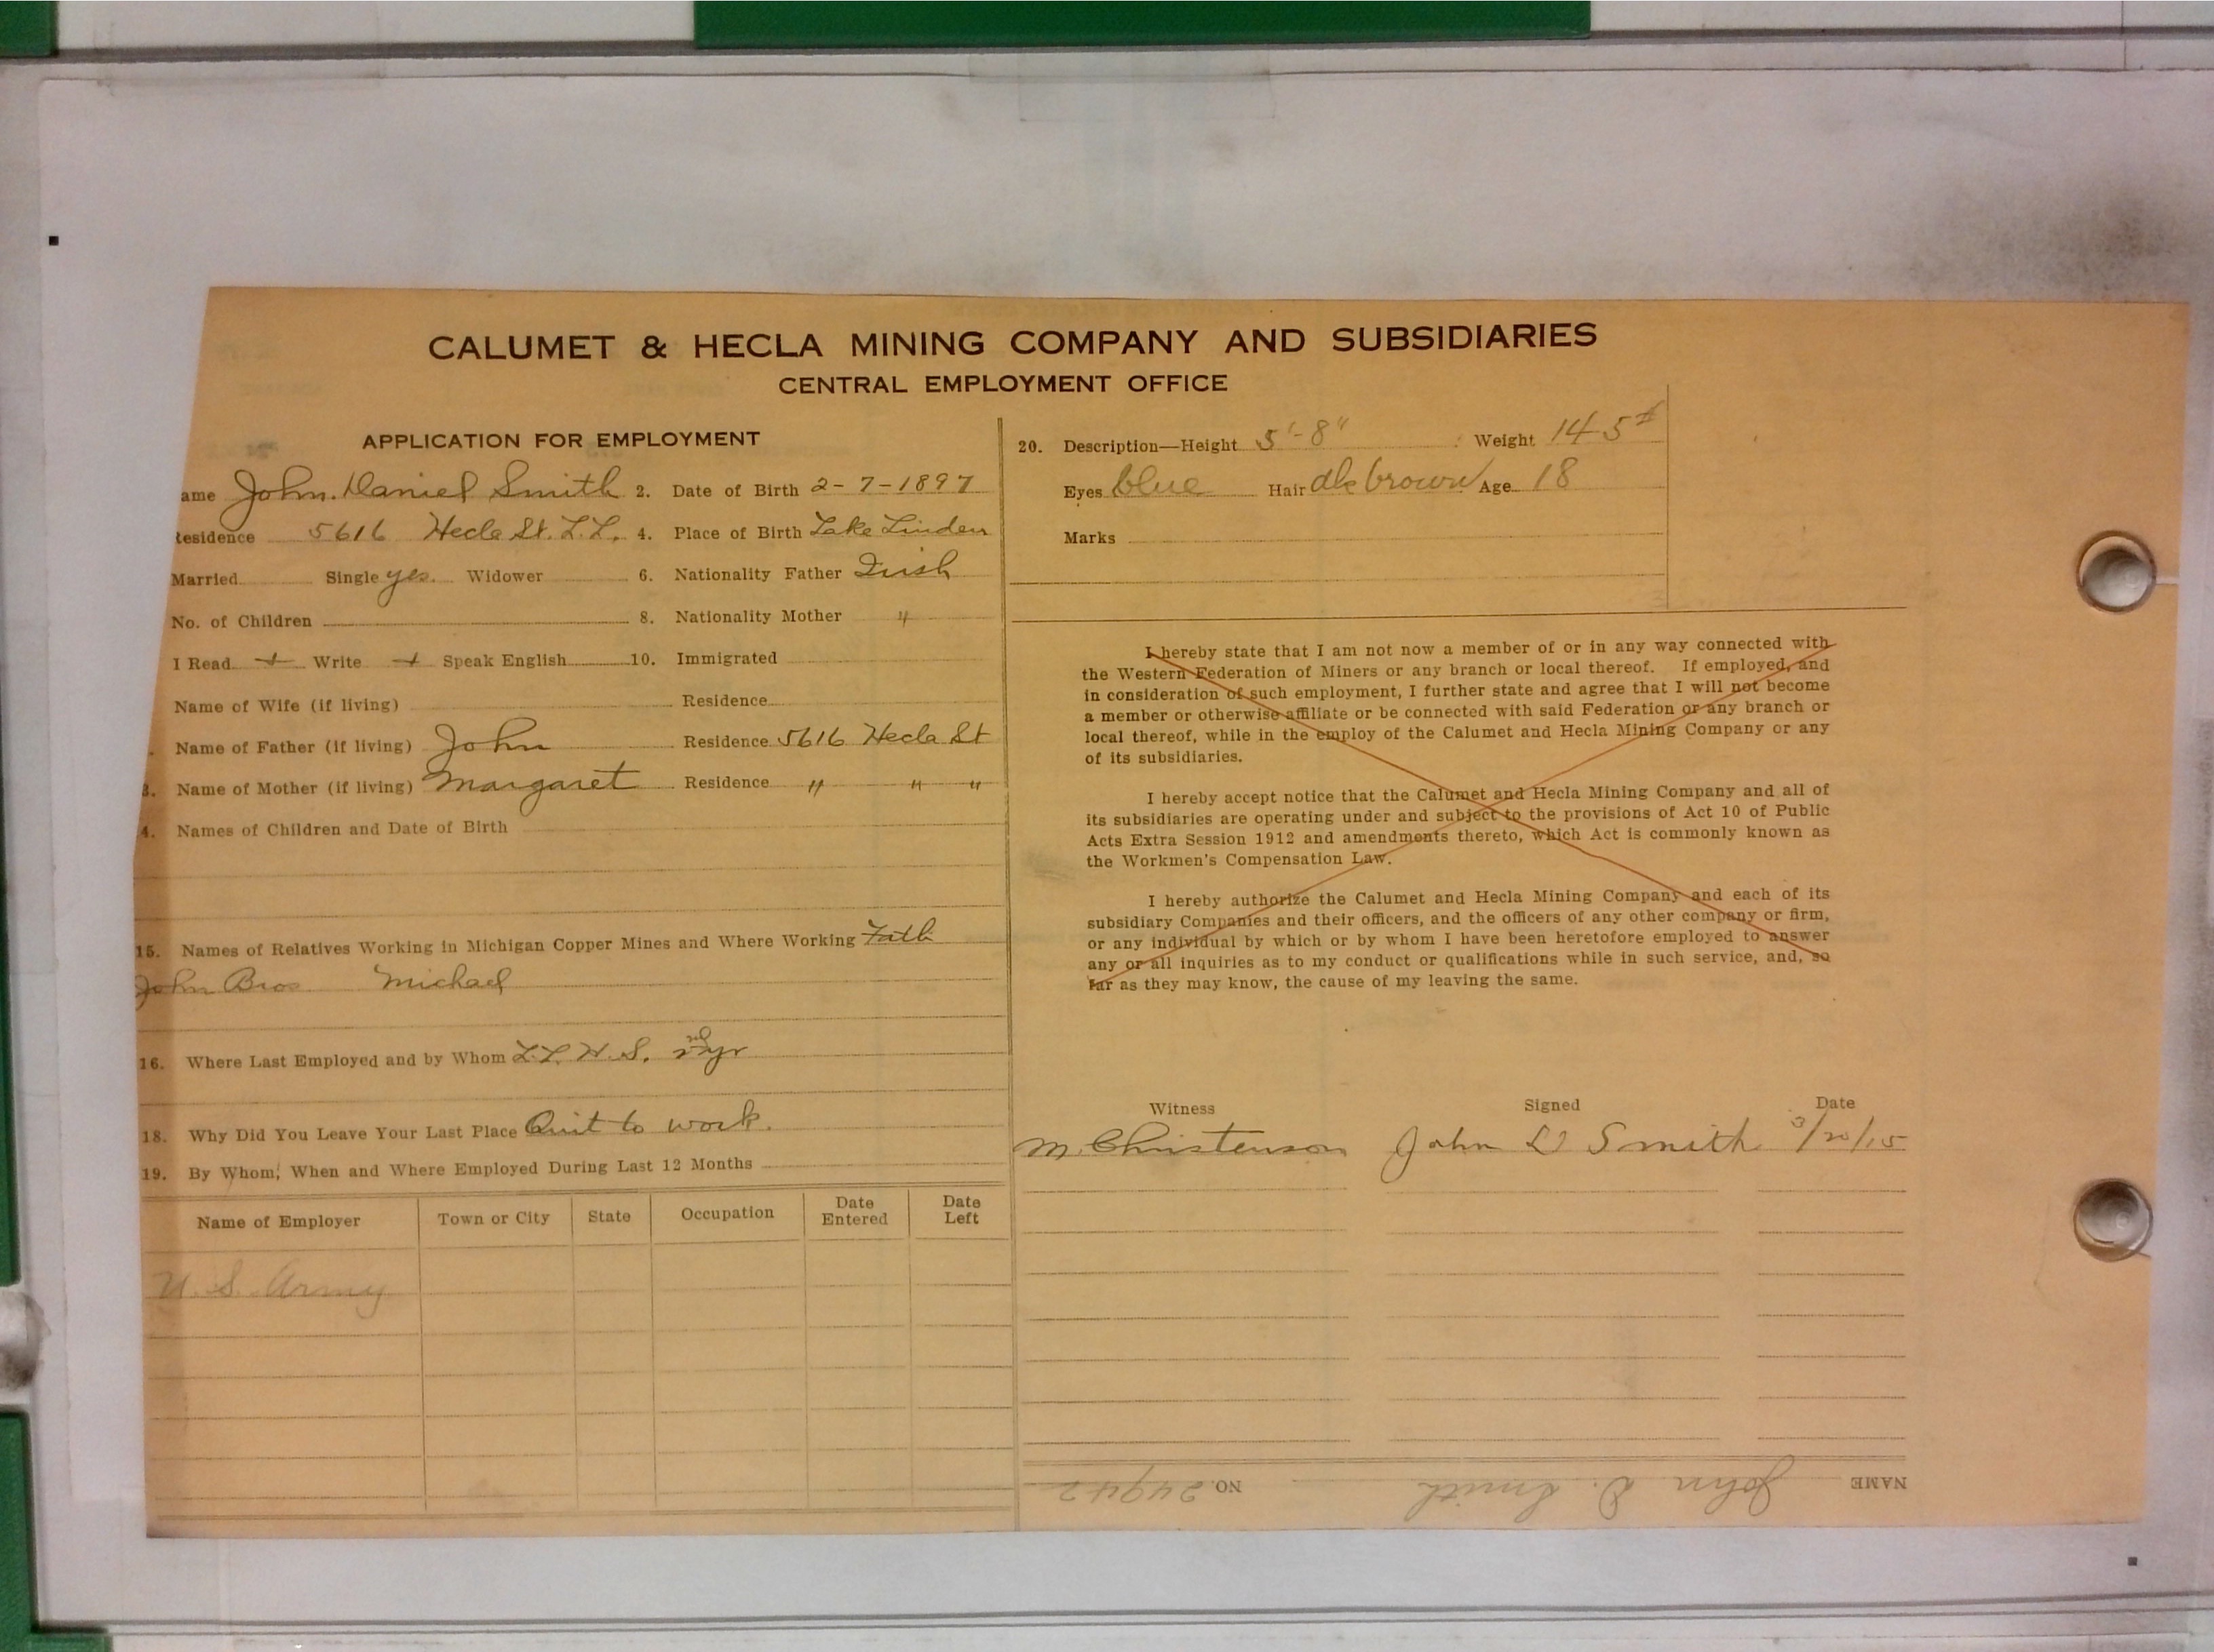 CALUMET & HECLA MINING COMPANY AND SUBSIDIARIES
CENTRAL EMPLOYMENT OFFICE
APPLICATION FOR EMPLOYMENT
ame John Daniel Smith 2. Date of Birth 2-7-1897
Residence 5616 Hecla St. L.L. 4. Place of Birth Lake Linden
Married Single yes. Widower 6. Nationality Father Irish
No. of Children 8. Nationality Mother "
I Read + Write + Speak English 10. Immigrated
Name of Wife (if living) Residence
Name of Father (if living) John Residence 5616 Hecla St
3. Name of Mother (if living) Margaret Residence " " "
4. Names of Children and Date of Birth
15. Names of Relatives Working in Michigan Copper Mines and Where Working Fath
John Bros Michael
16. Where Last Employed and by Whom L.L. H.S. yr
18. Why Did You Leave Your Last Place Quit to work.
19. By Whom, When and Where Employed During Last 12 Months
Name of Employer Town or City State Occupation Date Entered Date Left
U.S. Army
20. Description—Height 5'-8" Weight 145#
Eyes blue Hair dk brown Age 18
Marks
I hereby state that I am not now a member of or in any way connected with
the Western Federation of Miners or any branch or local thereof. If employed, and
in consideration of such employment, I further state and agree that I will not become
a member or otherwise affiliate or be connected with said Federation or any branch or
local thereof, while in the employ of the Calumet and Hecla Mining Company or any
of its subsidiaries.
I hereby accept notice that the Calumet and Hecla Mining Company and all of
its subsidiaries are operating under and subject to the provisions of Act 10 of Public
Acts Extra Session 1912 and amendments thereto, which Act is commonly known as
the Workmen's Compensation Law.
I hereby authorize the Calumet and Hecla Mining Company and each of its
subsidiary Companies and their officers, and the officers of any other company or firm,
or any individual by which or by whom I have been heretofore employed to answer
any or all inquiries as to my conduct or qualifications while in such service, and, so
far as they may know, the cause of my leaving the same.
Witness Signed Date
M. Christenson John D Smith 3/20/15
NAME John D. Smith NO. 24942